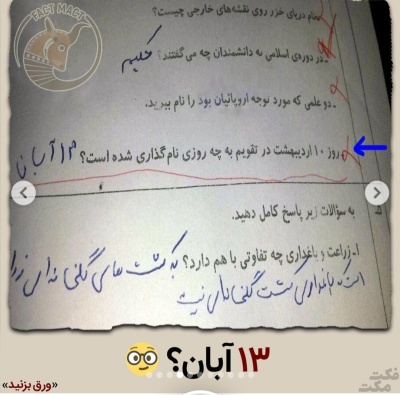 FACT MACT
نام دریای خزر روی نقشه‌های خارجی چیست؟
در دوره‌ی اسلامی به دانشمندان چه می‌گفتند؟ حکیم
دو علمی که مورد توجه اروپائیان بود را نام ببرید.
روز ۱۰ اردیبهشت در تقویم به چه روزی نام گذاری شده است؟ ۱۳ آبان
به سؤالات زیر پاسخ کامل دهید.
۱- زراعت و باغداری چه تفاوتی با هم دارد؟ به کشت های گلخانه ای زراعت
باغداری کشت گلخانه ای نیست
۱۳ آبان؟
«ورق بزنید»
فکت مکت